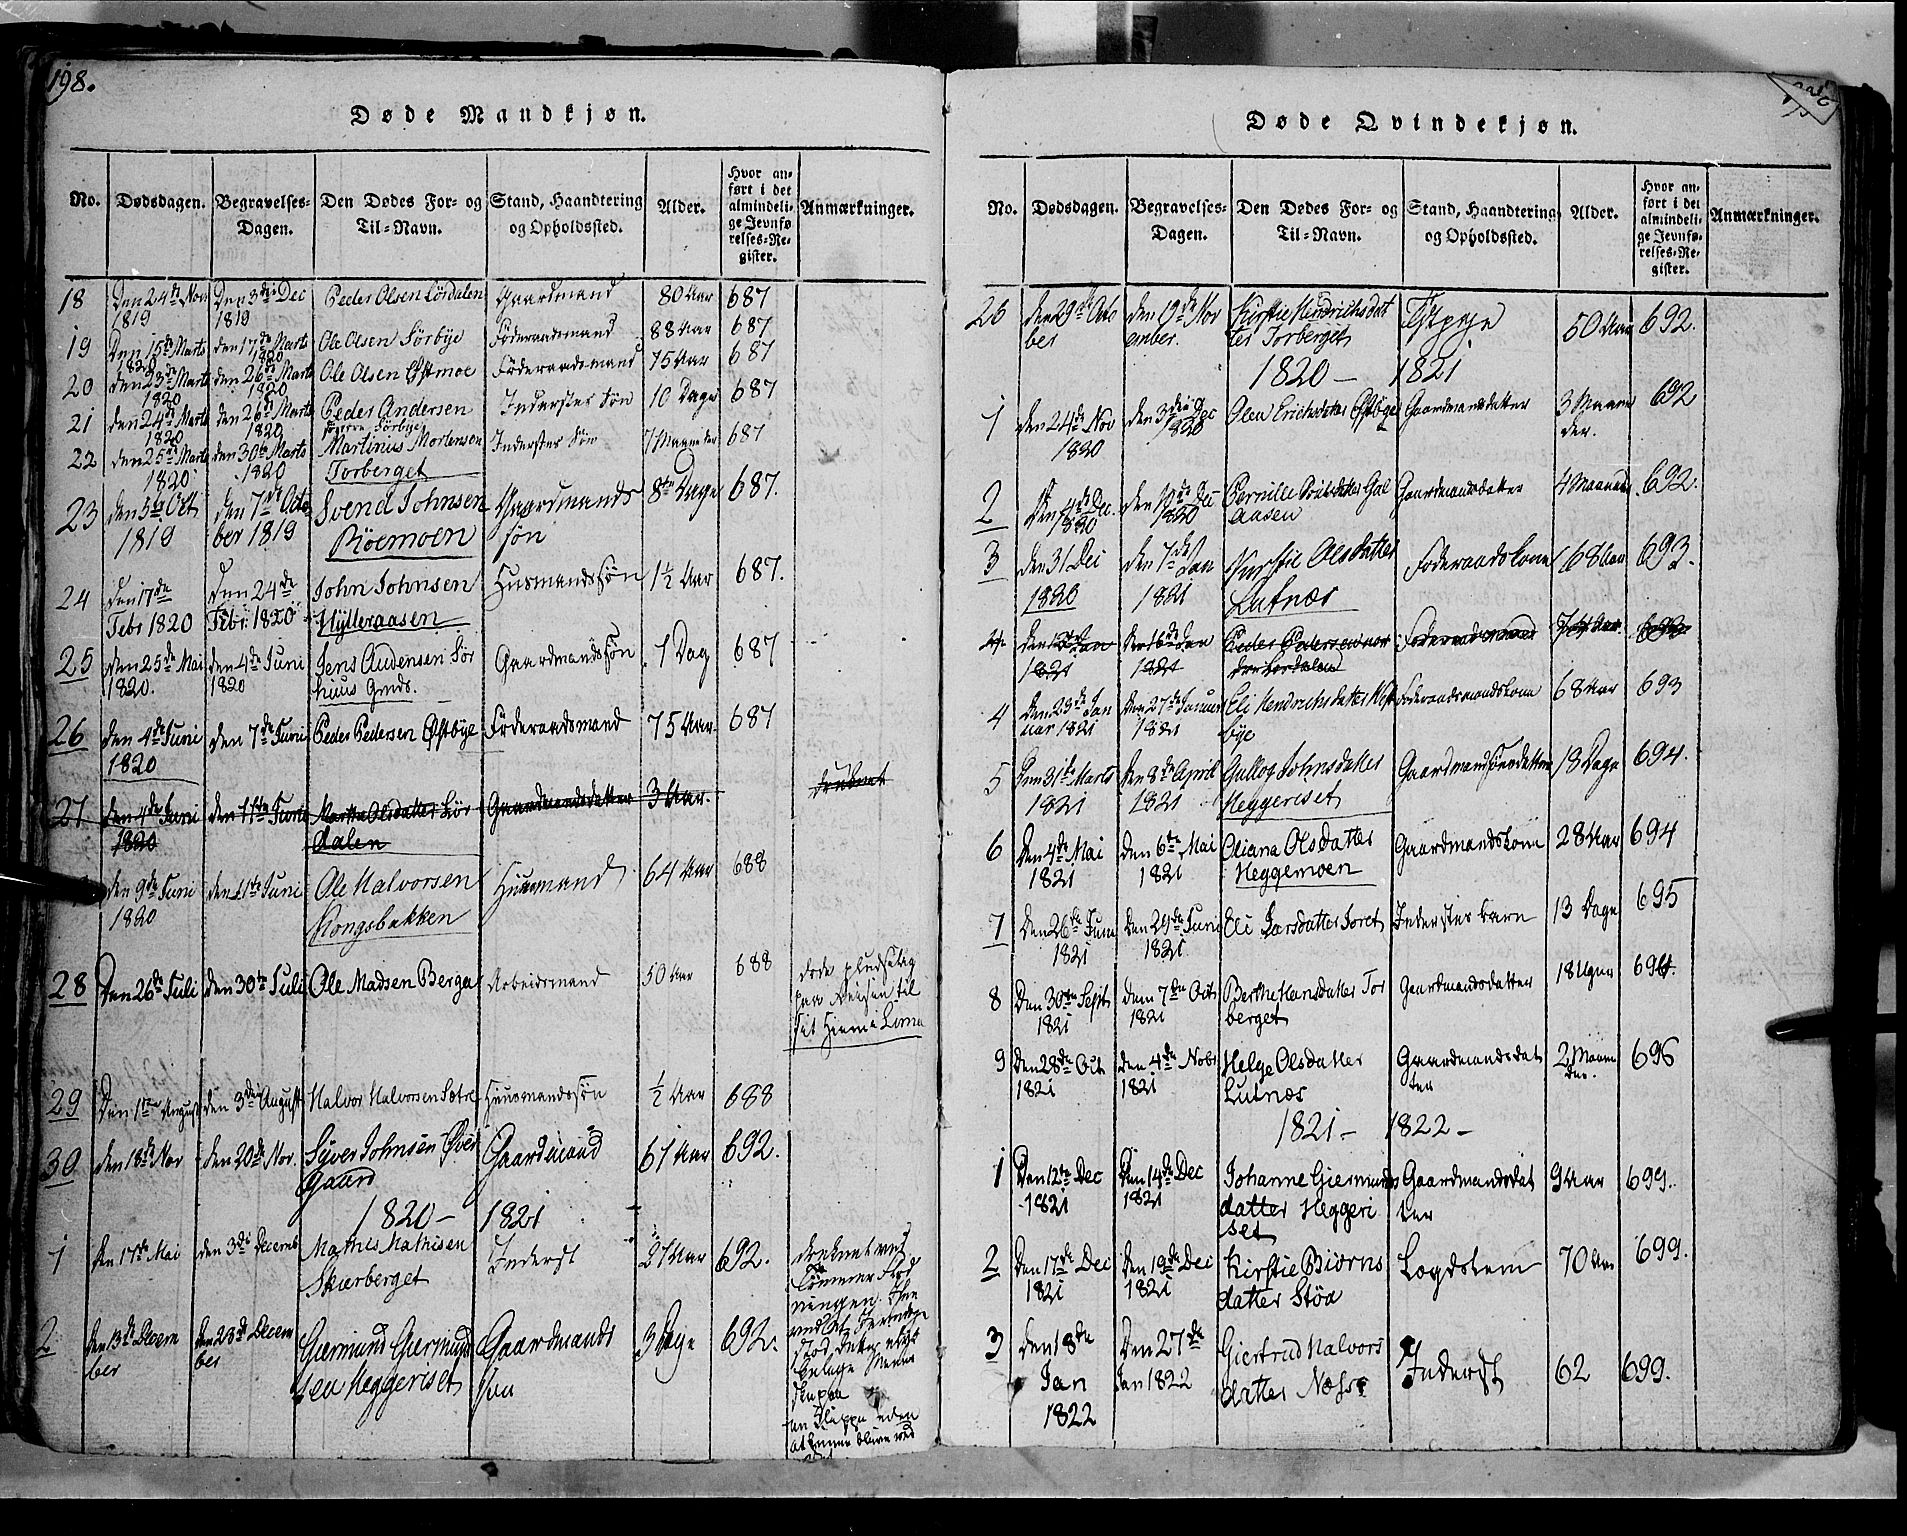 198.
Døde Mandkjøn.
No. Dødsdagen. Begravelses-Dagen. Den Dødes For- og Til-Navn. Stand, Haandtering og Opholdssted. Alder. Hvor anført i det almindelige Jevnførelses-Register. Anmærkninger.
18 Den 24de Nov 1819 Den 3die Dec 1819 Peder Olsen Lördalen Gaardmand 80 Aar 687
19 Den 15de Marts 1820 den 17de Marts 1820 Ole Olsen Sörbÿe Föderaadsmand 88 Aar 687
20 den 23de Marts 1820 den 26de Marts 1820 Ole Olsen Østmoe Föderaadsmand 75 Aar 687
21 den 24de Marts 1820 den 26de Marts 1820 Peder Andersen Sörbye Inderstes Søn 10 Dage 687
22 den 25de Marts 1820 den 30te Marts 1820 Martinius Mortensen Torberget Inderstes Søn 7 Maaneder 687
23 den 5te Oct 1819 den 7de October 1819 Svend Johnsen Röemoen Gaardmands søn 8te Dage 687.
24 den 17de Febr 1820 Den 24de Febr: 1820 John Johnsen Hÿlleraasen Husmandssøn 1½ Aar 687.
25 den 25de Mai 1820. den 4de Juni 1820 Jens Audensen Sørhuus Gaardmandssøn 1 Dag 687
26 den 4de Juni 1820 den 7de Juni Peder Pedersen Østbÿe Föderaadsmand 75 Aar. 687
27 den 4de Juni 1820 den 11te Juni Martha Olsdatter Lördalen Gaardmandsdatter 3 Aar. druknet
den 9de Juni 1820 den 11te Juni Ole Halvorsen Kongsbakken Huusmand 64 Aar 688
28 Den 26de Juli den 30te Juli Ole Madsen Berga Arbeidsmand 50 Aar 688 døde pludselig paa Reisen til sit Hiem i Lima
29 Den 1ste August den 3die August Halvor Halvorsen Sætre Huusmandssøn ½ Aar 688
30 den 18de Nov den 20de Nov. Siver Johnsen Øvergaard Gaardmand 61 Aar 692.
1820 – 1821
1 Den 17de Mai den 3die Decemb Mathis Mathisen Skiærberget Inderst 27 Aar 692. druknet ved Tömmer Flodningen
2 Den 13de December Den 23de December Giermund Giermundsen Heggeriset Gaardmands søn 3 Dage 692.
Døde Qvindekjøn.
No. Dødsdagen. Begravelses-Dagen. Den Dødes For- og Til-Navn. Stand, Haandtering og Opholdssted. Alder. Hvor anført i det almindelige Jevnførelses-Register. Anmærkninger.
26 den 29de October den 19de November. Kirstie Hendrichsdatter Torberget 50 Aar 692.
1820 – 1821
1 den 24de Nov 1820 den 3die Dec 1820 Olea Erichsdatter Østbÿe Gaardmandsdatter 3 Maaneder. 692
2 Den 4de Dec. 1820 den 10de Dec 1820 Pernille Galaasen Gaardmandsdatter 4 Maaneder 692.
3 den 31 Dec 1820 den 7de Jan 1821 Kirstie Olsdatter Lutnæs Foderaadskone 68 Aar 693.
4. 1821 den 16de Jan 1821 Peder Pedersen Lördalen Foderaadsmand
4 Den 23de Januar 1821 Den 27de Januar 1821 Eli Hendrichsdatter bÿe Foderaadsmandskone 68 Aar 693
5 Den 31te Marts 1821 Den 8de April 1821 Gullog Johnsdatter Heggeriset Gaardmandsdatter 18 Dage 694.
6 Den 4de Mai 1821 den 6te Mai 1821 Oliana Olsdatter Heggemoen Gaardmandskone 28 Aar 694
7 den 26de Juni 1821 Den 29de Juni 1821 Eli Larsdatter Joret Inderstes barn 13 Dage 695
8 Den 30te Sept 1821 dem 7de Oct 1821 Berthe Hansdatter Torberget Gaardmandsdatter 18 Uger 694.
9 Den 28de Oct 1821 den 4de Nobr 1821 Helge Olsdatter Lutnæs Gaardmandsdatter 2 Maaneder. 696
1821 – 1822 –
1 Den 12te Dec 1821 Den 14de Dec 1821 Johanne Giermundsdatter Heggeriset Gaardmandsdatter 9 Aar 699.
2 Den 17de Dec 1821 Den 19de Dec 1821 Kirstie Biörnsdatter Stöa Lægdslem 70 Aar 699.
3 Den 18de Jan 1822 Den 27de Jan 1822 Giertrud Halvorsdatter Inderst 62 699.